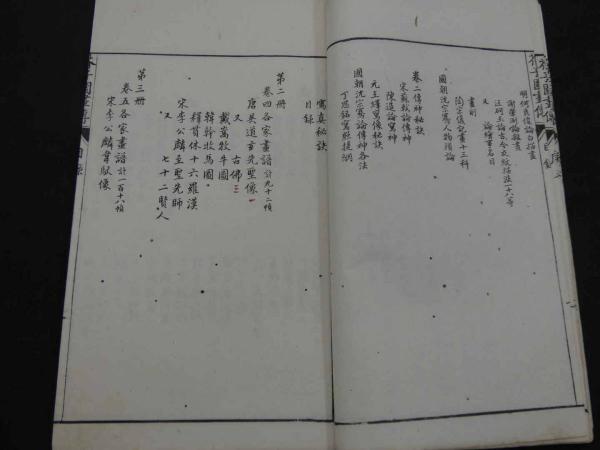 明何良俊論白描畫
謝肇淛論概畫
汪砢玉論古今衣紋描法一十八等
又 論繪事名目
畫則
陶宗儀記畫十三科
國朝沈宗騫人物瑣論
卷二傳神秘訣
宋蘇軾論傳神
陳造論寫神
元王繹寫像秘訣
國朝沈宗騫論傳神各法
丁思銘寫照提綱
寫真秘訣
目錄
第二冊
卷四各家畫譜 計九十二幀
唐吳道玄先聖像
又 古佛
戴嵩牧牛圖
韓幹牧馬圖
釋貫休十六羅漢
宋李公麟至聖先師
又 七十二賢人
第三冊
卷五各家畫譜 計一百十八幀
宋李公麟韋馱像